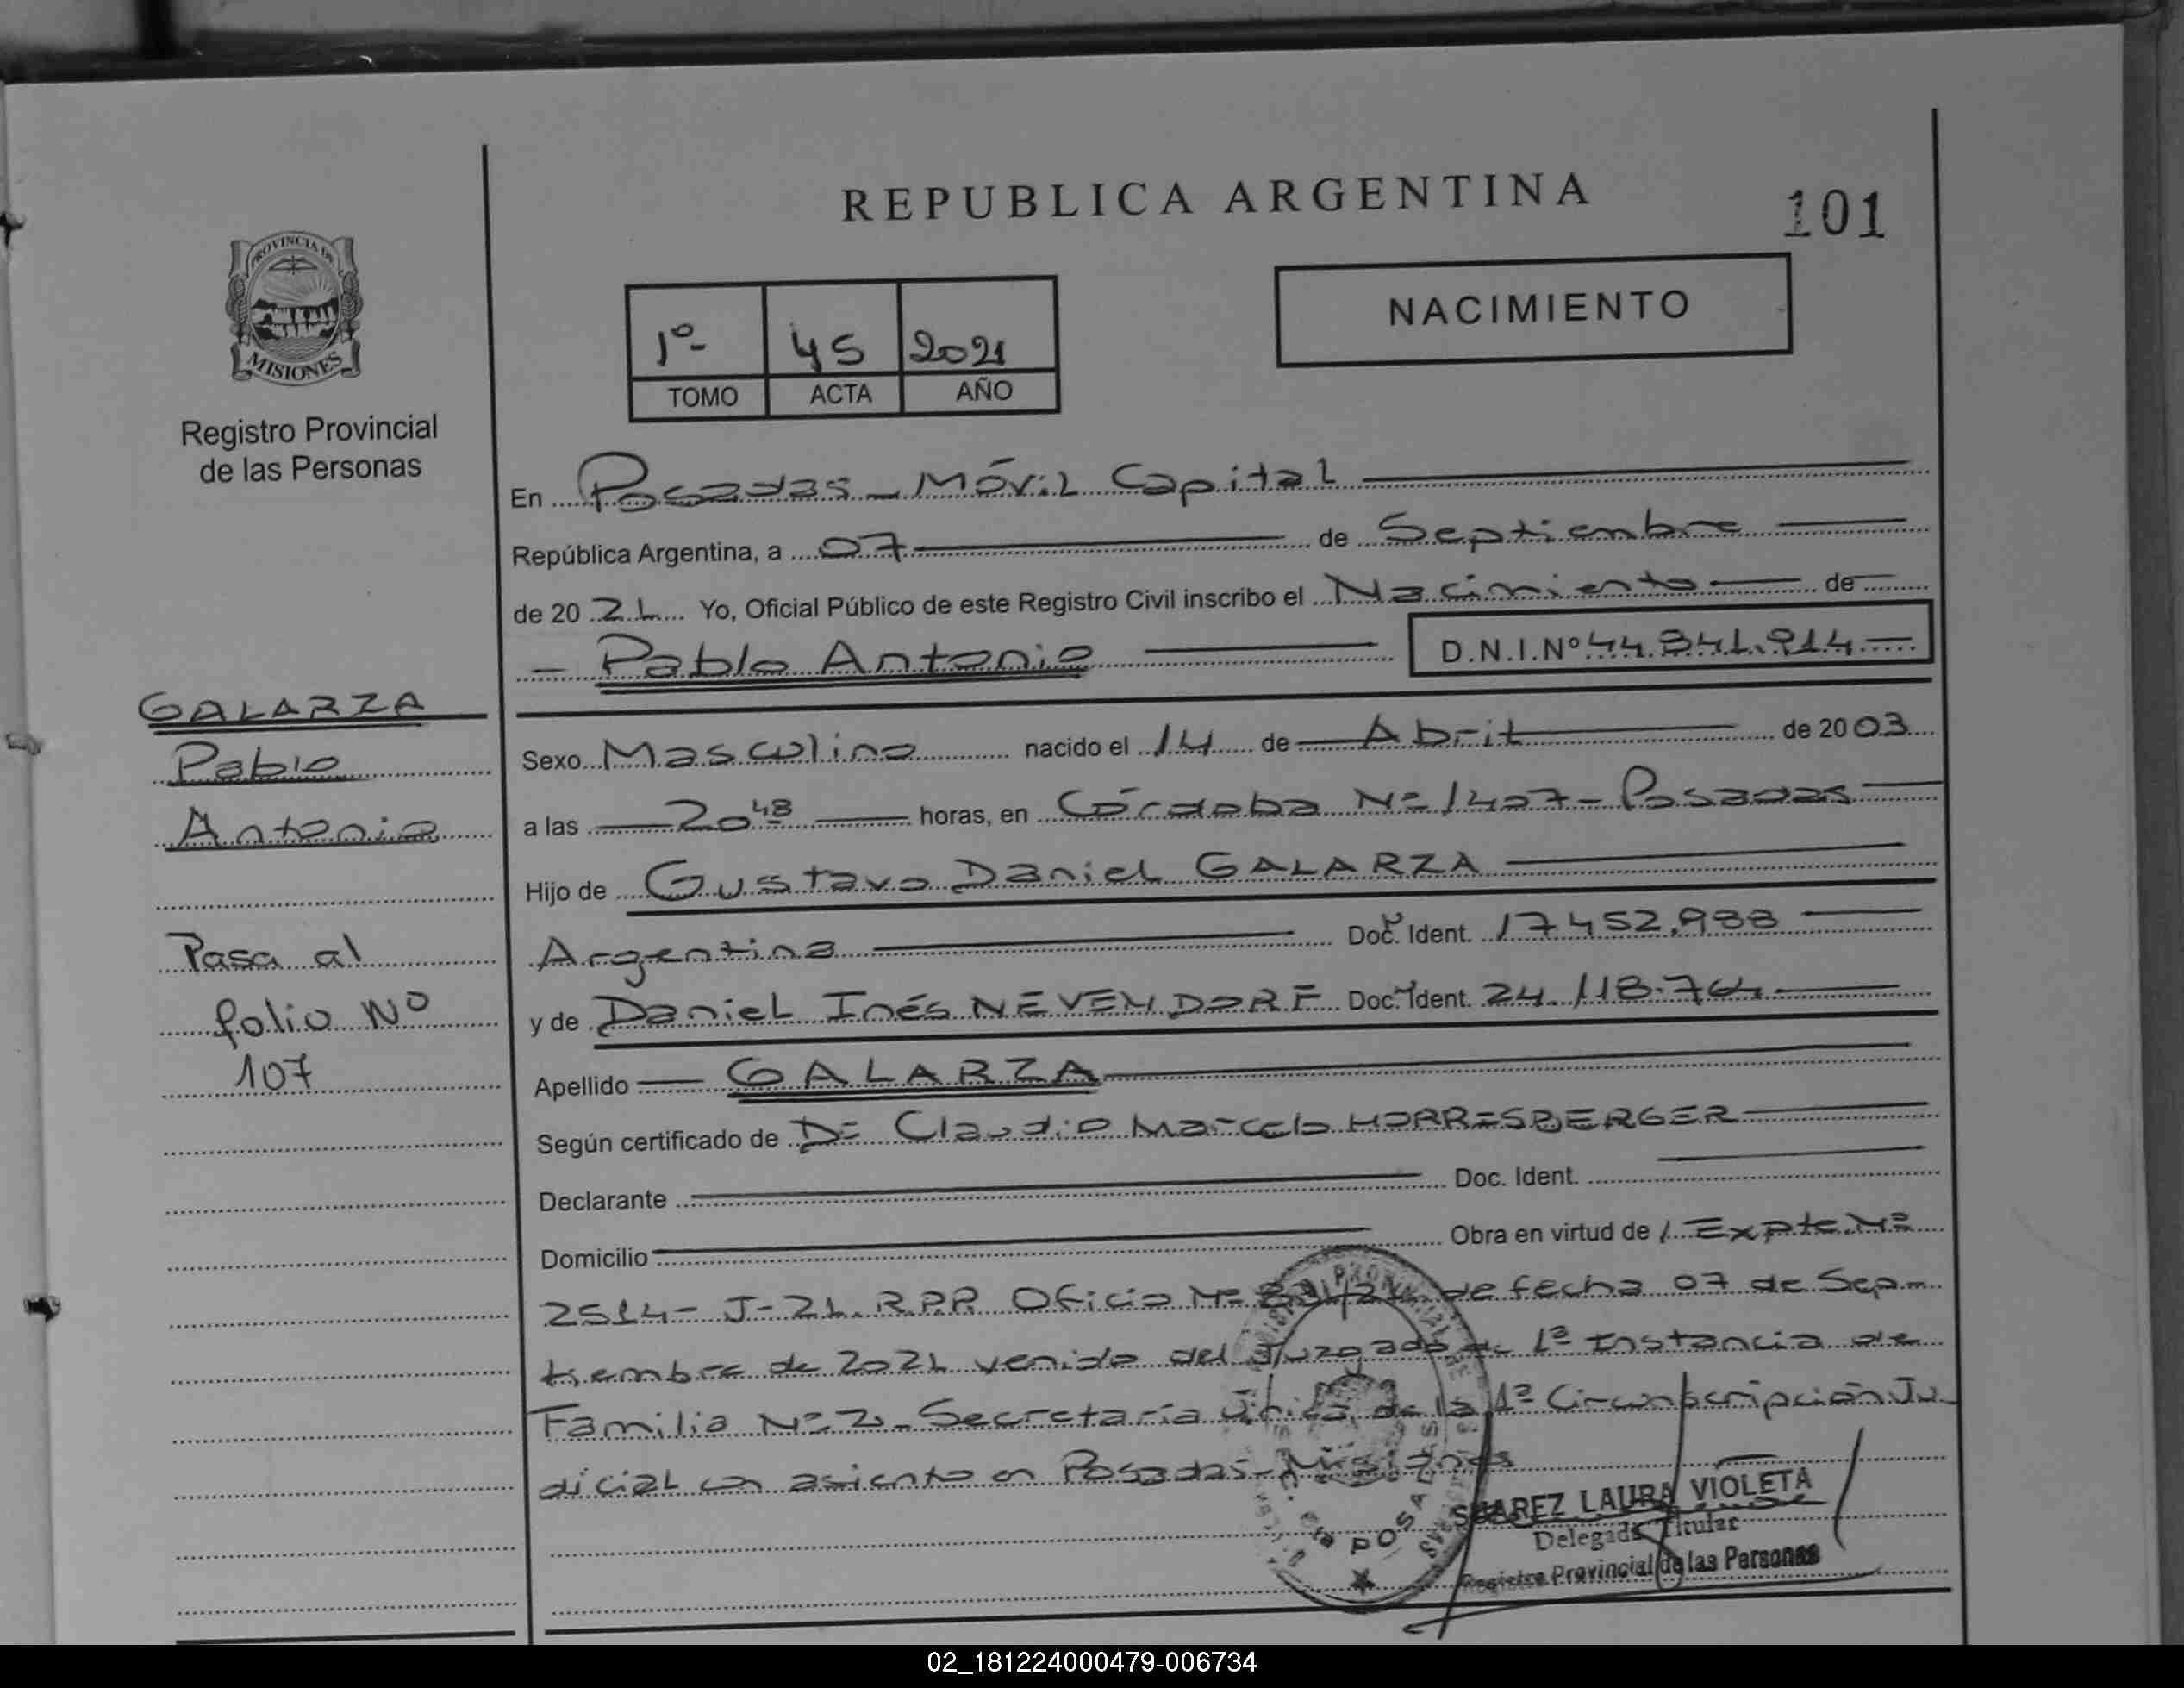 REPUBLICA ARGENTINA
101
PROVINCIA DE
MISIONES
Registro Provincial
de las Personas
1º 45 2021
TOMO ACTA AÑO
NACIMIENTO
En Posadas - Móvil Capital
República Argentina, a 07 de Septiembre
de 20 21 Yo, Oficial Público de este Registro Civil inscribo el Nacimiento de
- Pablo Antonio D.N.I.Nº 44.841.914
GALARZA
Pablo
Antonio
Pasa al
folio Nº
107
Sexo Masculino nacido el 14 de Abril de 20 03
a las 20 48 horas, en Córdoba Nº 1407 - Posadas
Hijo de Gustavo Daniel GALARZA
Argentina Doc. Ident. 17452.988
y de Daniel Inés NEVENDORF Doc. Ident. 24.118.764
Apellido GALARZA
Según certificado de Dr Claudio Marcelo HORRISBERGER
Declarante Doc. Ident.
Domicilio Obra en virtud de / Expte Nº
2514 - J-21. R.P.P. Oficio Nº de fecha 07 de Sep-
tiembre de 2021 venido del Juzgado de 1ª Instancia de
Familia Nº 2 - Secretaría Única de la 1ª Circunscripción Ju-
dicial con asiento en Posadas - Misiones
SUAREZ LAURA VIOLETA
Delegada Titular
Registro Provincial de las Personas
02_181224000479-006734